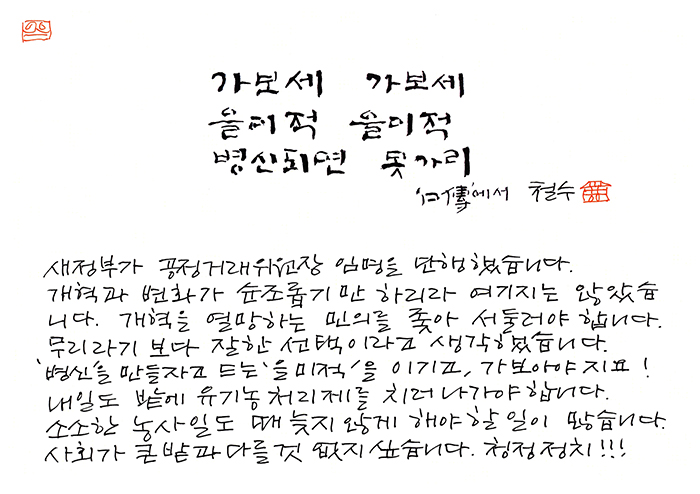 가보세 가보세
을미적 을미적
병신되면 못가리
'口傳'에서 철수
새정부가 공정거래위원장 임명을 단행했습니다.
개혁과 변화가 순조롭기만 하리라 여기지는 않았습
니다. 개혁을 열망하는 민의를 좇아 서둘러야 합니다.
무리라기 보다 잘한 선택이라고 생각했습니다.
'병신'을 만들자고 드는 '을미적'을 이기고, 가보아야지요!
내일도 밭에 유기농처리제를 치러 나가야합니다.
소소한 농사일도 때 늦지않게 해야할 일이 많습니다.
사회가 큰 밭과 다를것 없지 싶습니다. 청정정치!!!